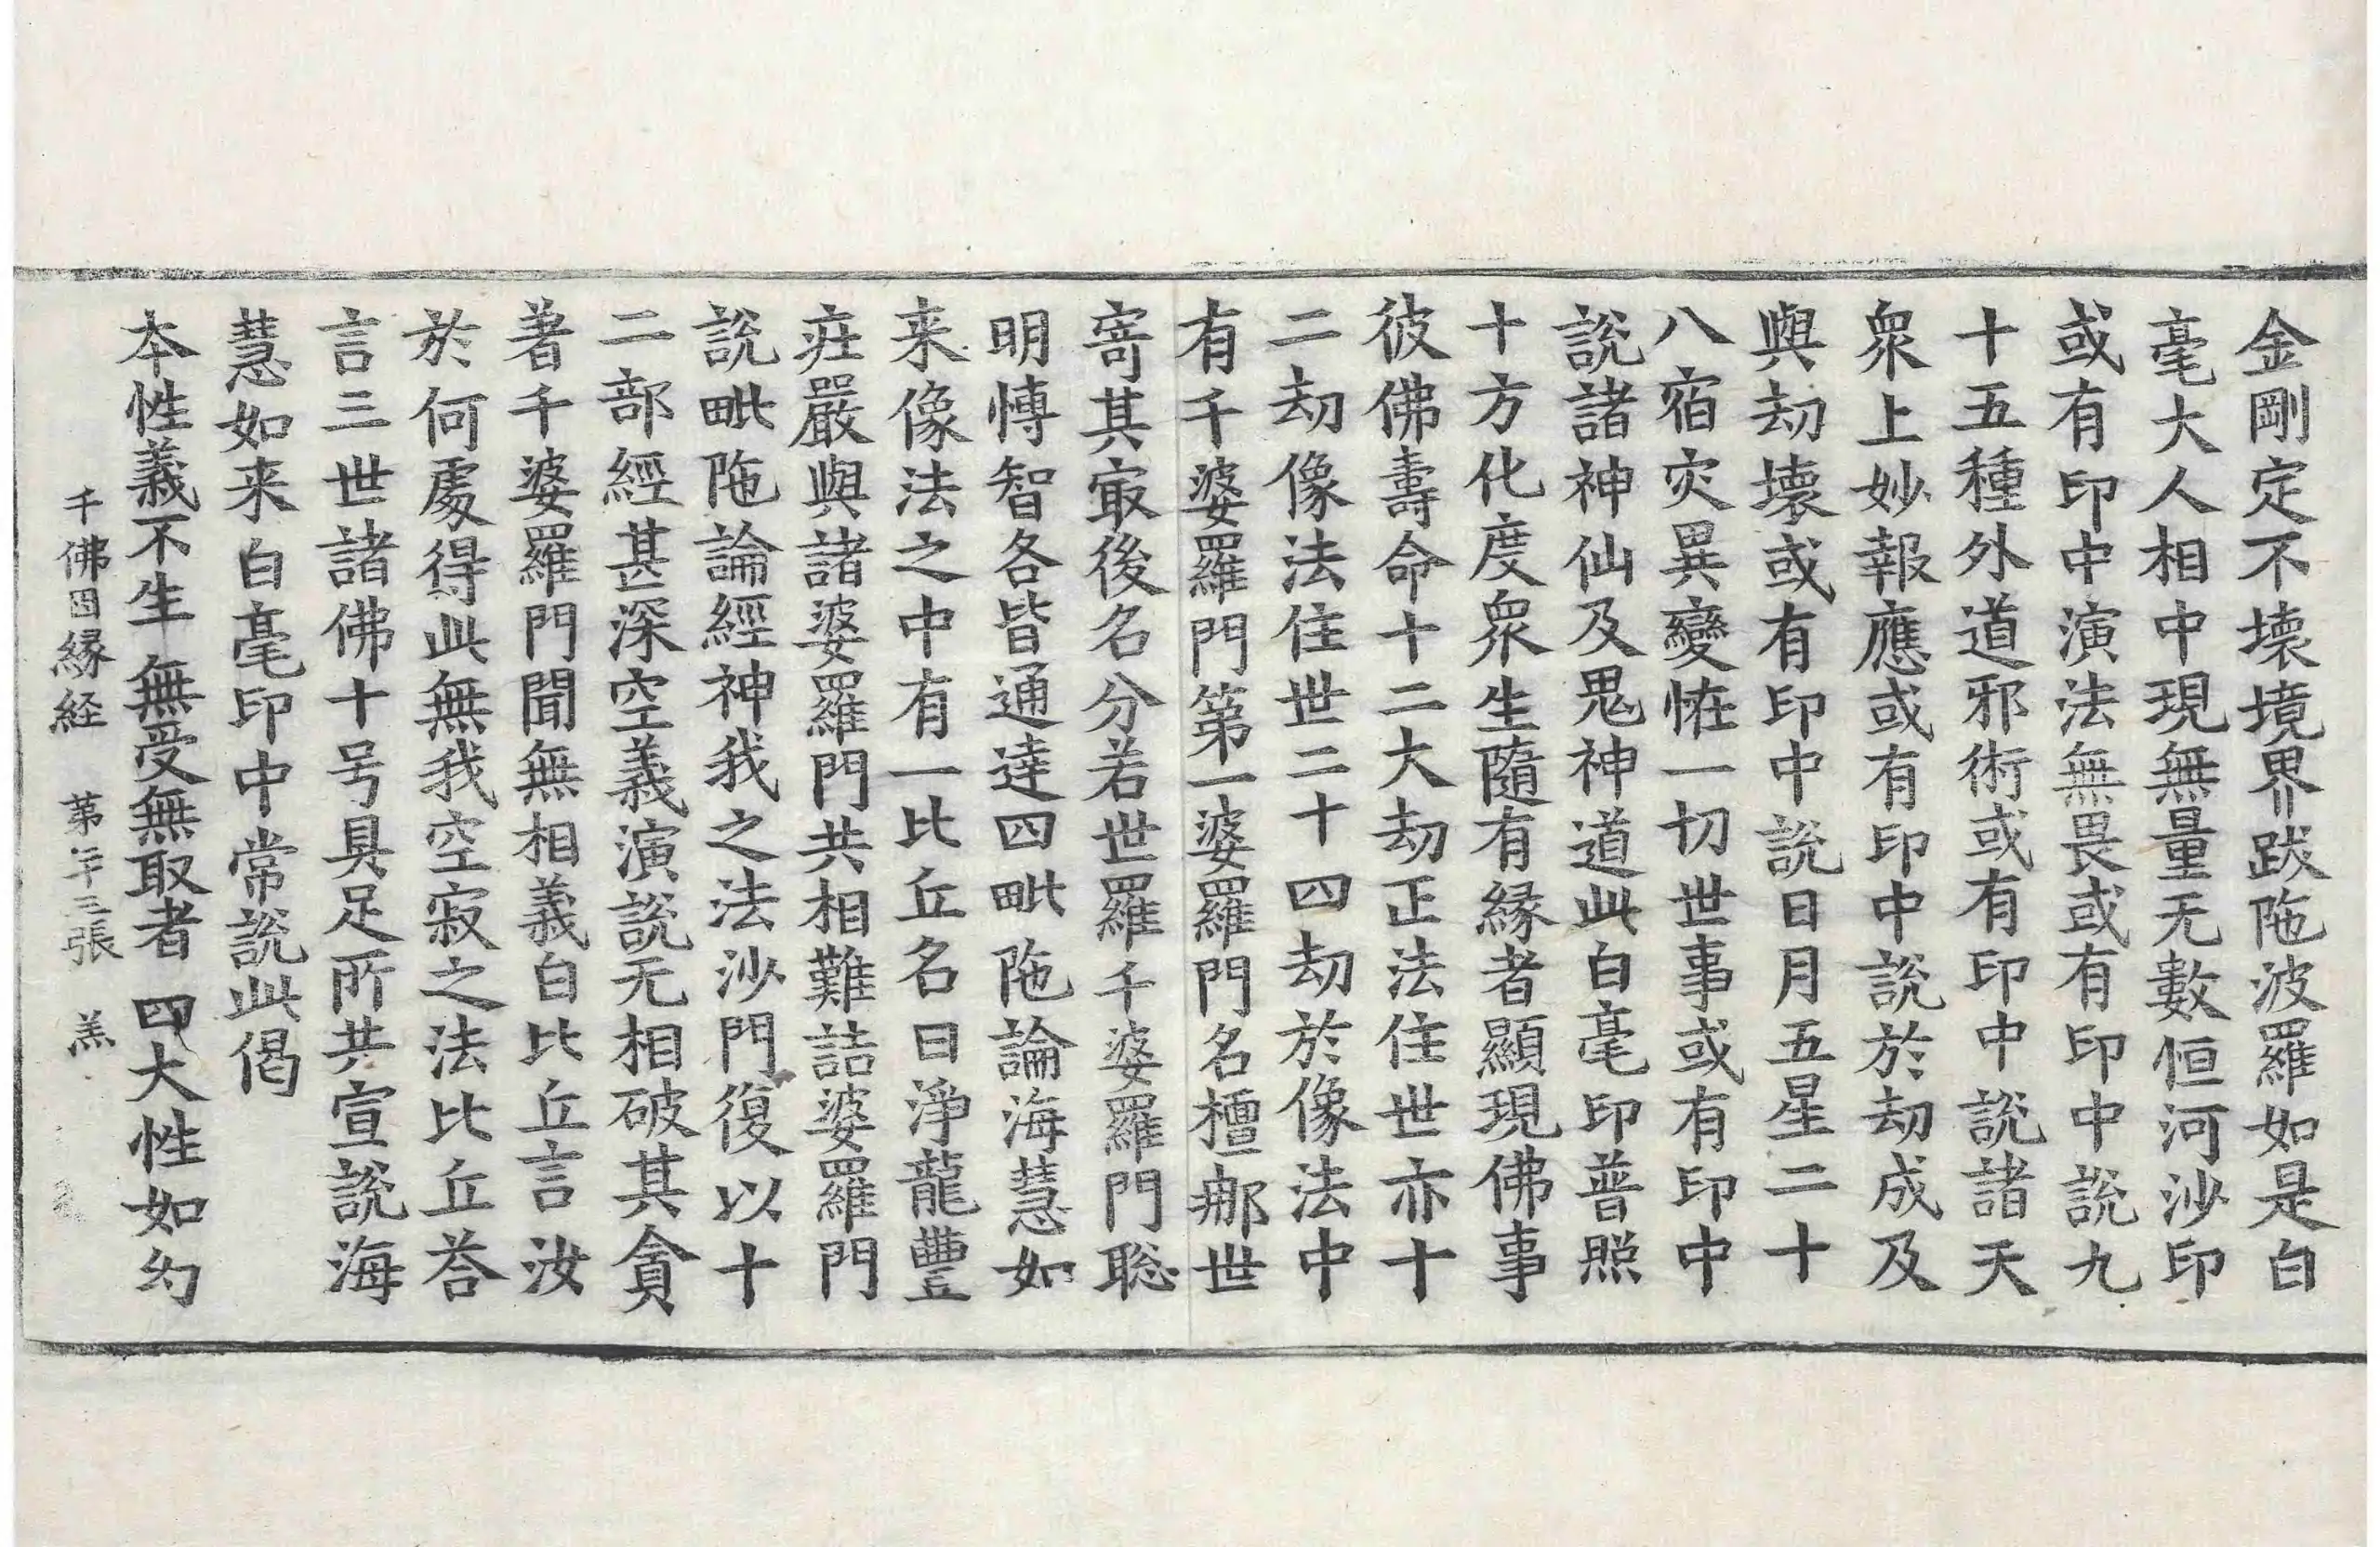 金剛定不壞境界跋陁波羅如是白
毫大人相中現無量无數恒河沙印
或有印中演法無畏或有印中說九
十五種外道邪術或有印中說諸天
衆上妙報應或有印中說於劫成及
與劫壞或有印中說日月五星二十
八宿灾異變恠一切世事或有印中
說諸神仙及鬼神道此白毫印普照
十方化度衆生隨有緣者顯現佛事
彼佛壽命十二大劫正法住世亦十
二劫像法住世二十四劫於像法中
有千婆羅門第一婆羅門名檀那世
寄其冣後名分若世羅千婆羅門聡
明愽智各皆通達四毗陁論海慧如
来像法之中有一比丘名曰淨龍豐
莊嚴與諸婆羅門共相難詰婆羅門
說毗陁論經神我之法沙門復以十
二部經甚深空義演說无相破其貪
著千婆羅門聞無相義白比丘言汝
於何處得此無我空寂之法比丘荅
言三世諸佛十号具足所共宣說海
慧如来白毫印中常說此偈
本性義不生 無受無取者 四大性如幻
千佛因縁経 第二十三張 羔